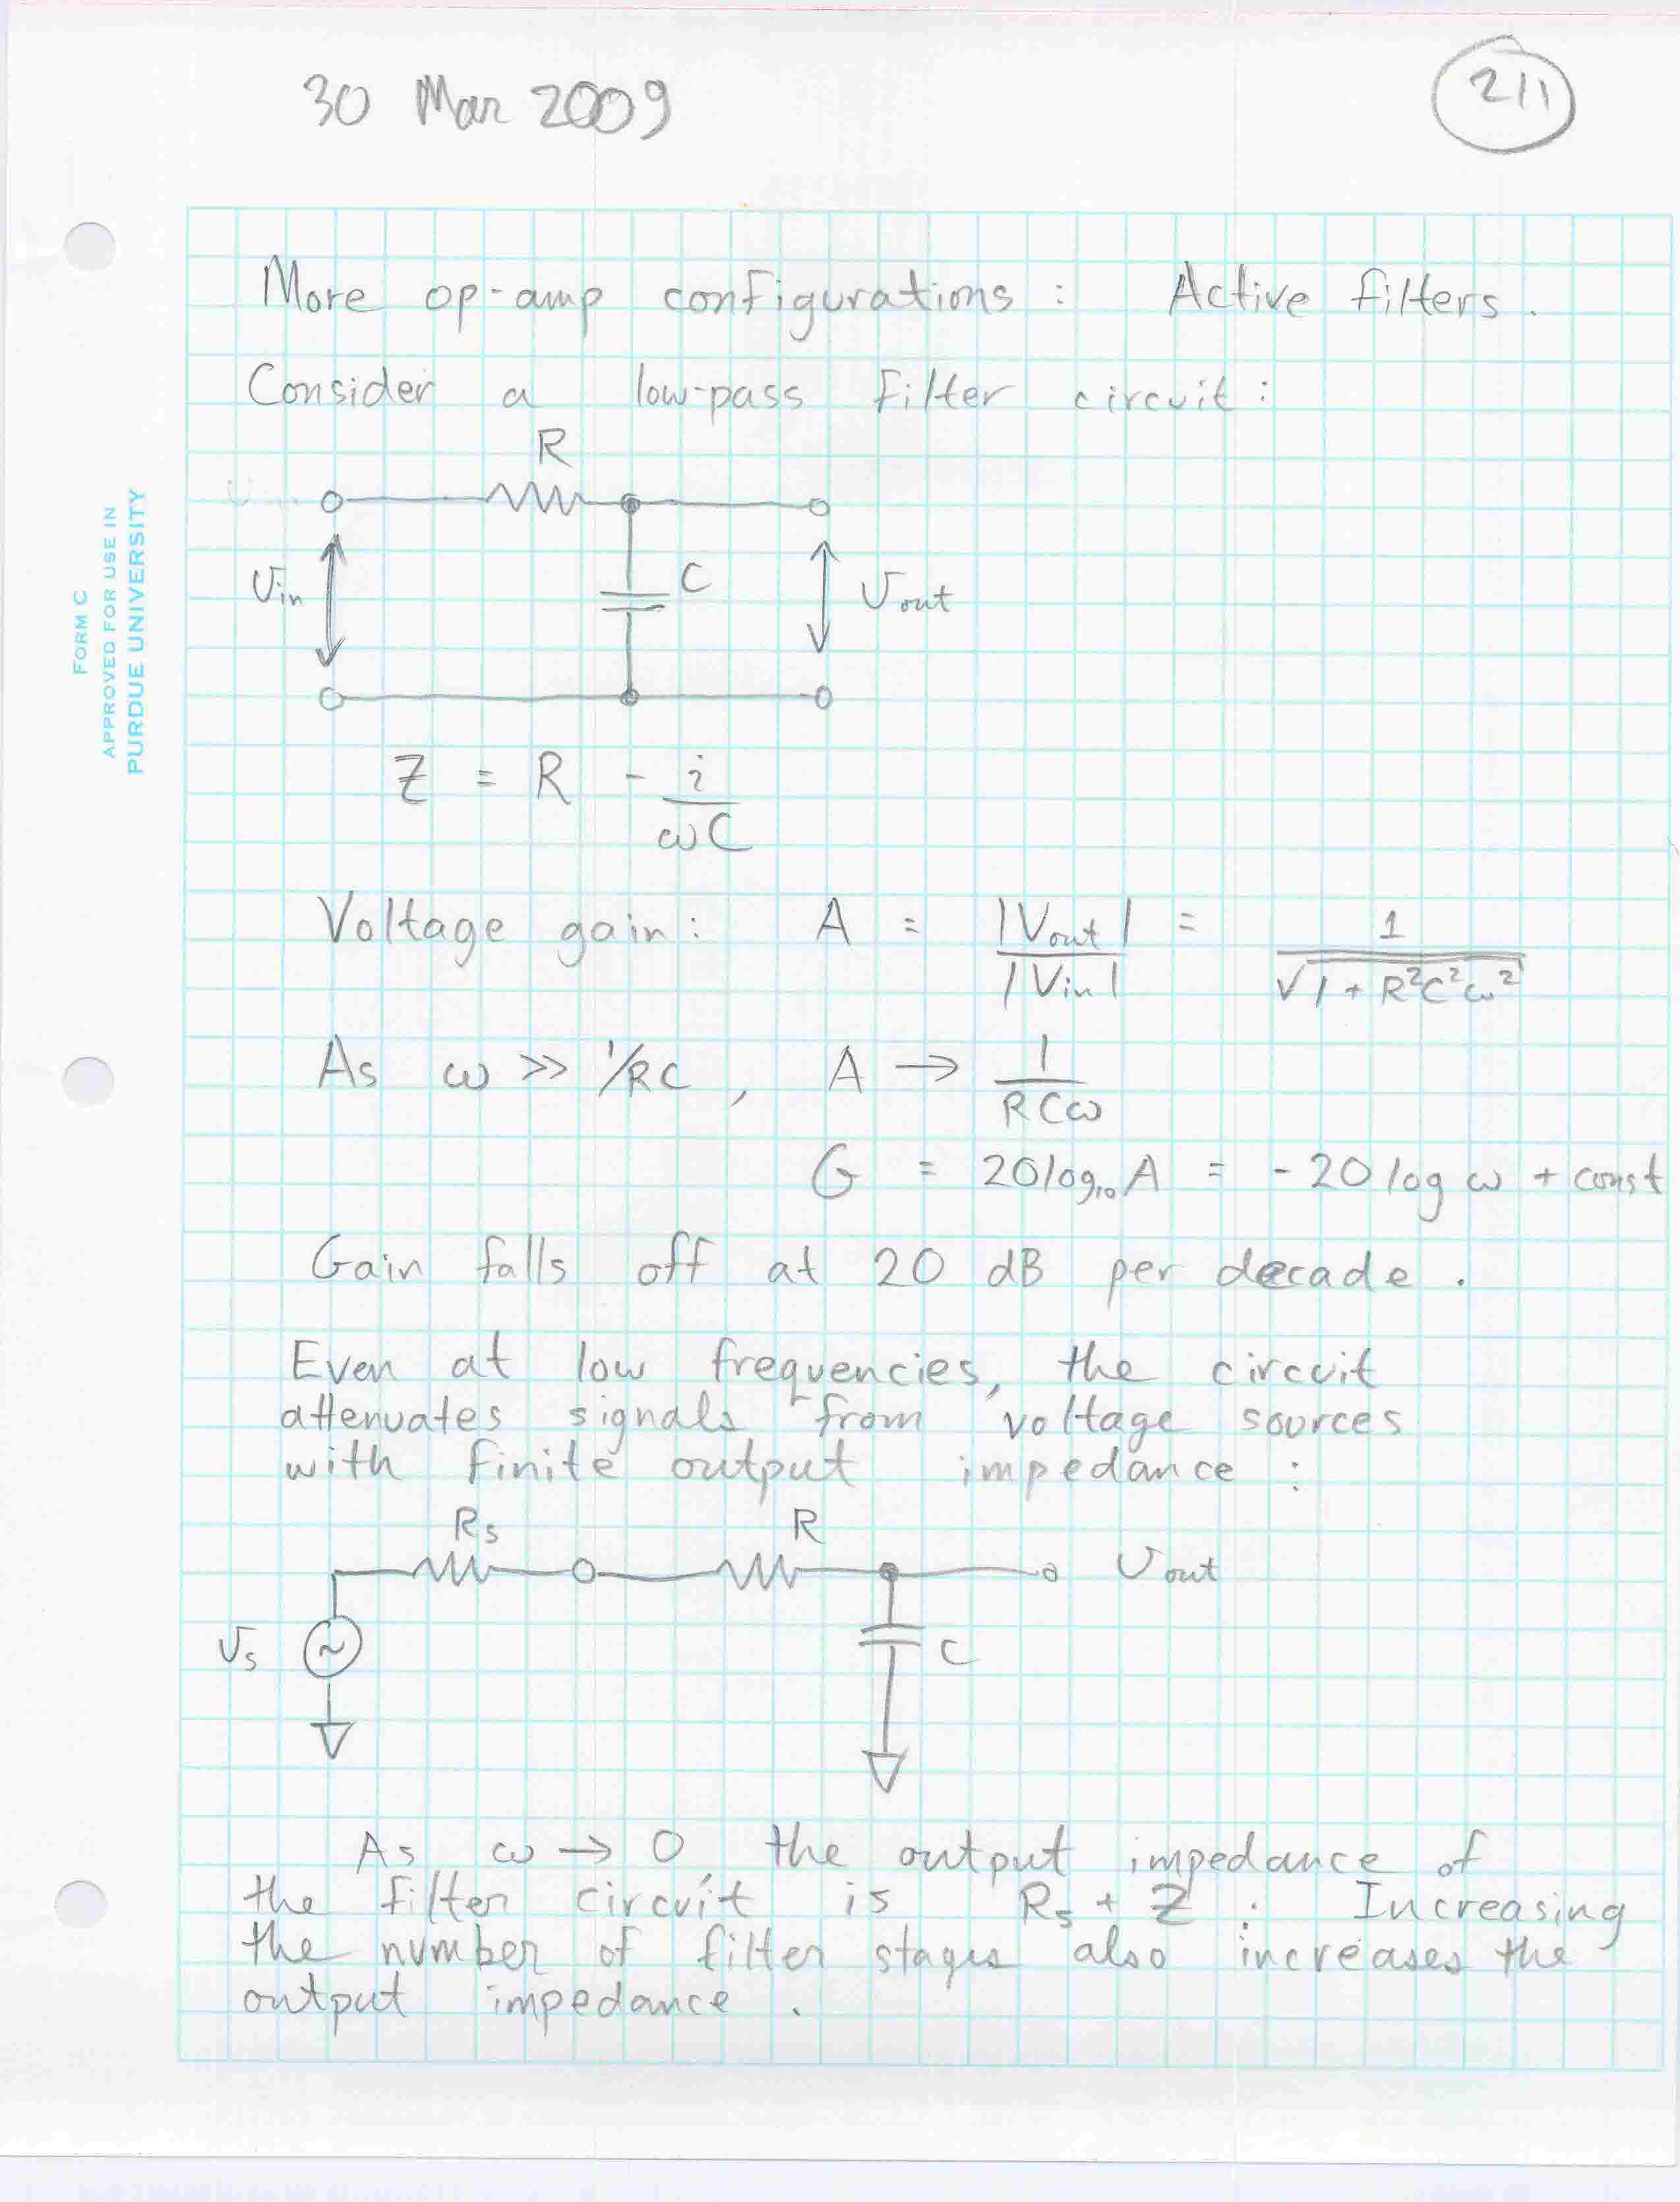 30 Mar 2009
211
FORM C
APPROVED FOR USE IN
PURDUE UNIVERSITY
More op-amp configurations : Active filters.
Consider a low-pass filter circuit :
R
Vin
C
Vout
Z = R - i/ωC
Voltage gain : A = |Vout|/|Vin| = 1/√(1 + R²C²ω²)
As ω >> 1/RC , A → 1/RCω
G = 20log₁₀A = -20 log ω + const
Gain falls off at 20 dB per decade .
Even at low frequencies, the circuit
attenuates signals from voltage sources
with finite output impedance :
Rs R
Vout
Vs
C
As ω → 0, the output impedance of
the filter circuit is Rs + Z . Increasing
the number of filter stages also increases the
output impedance .